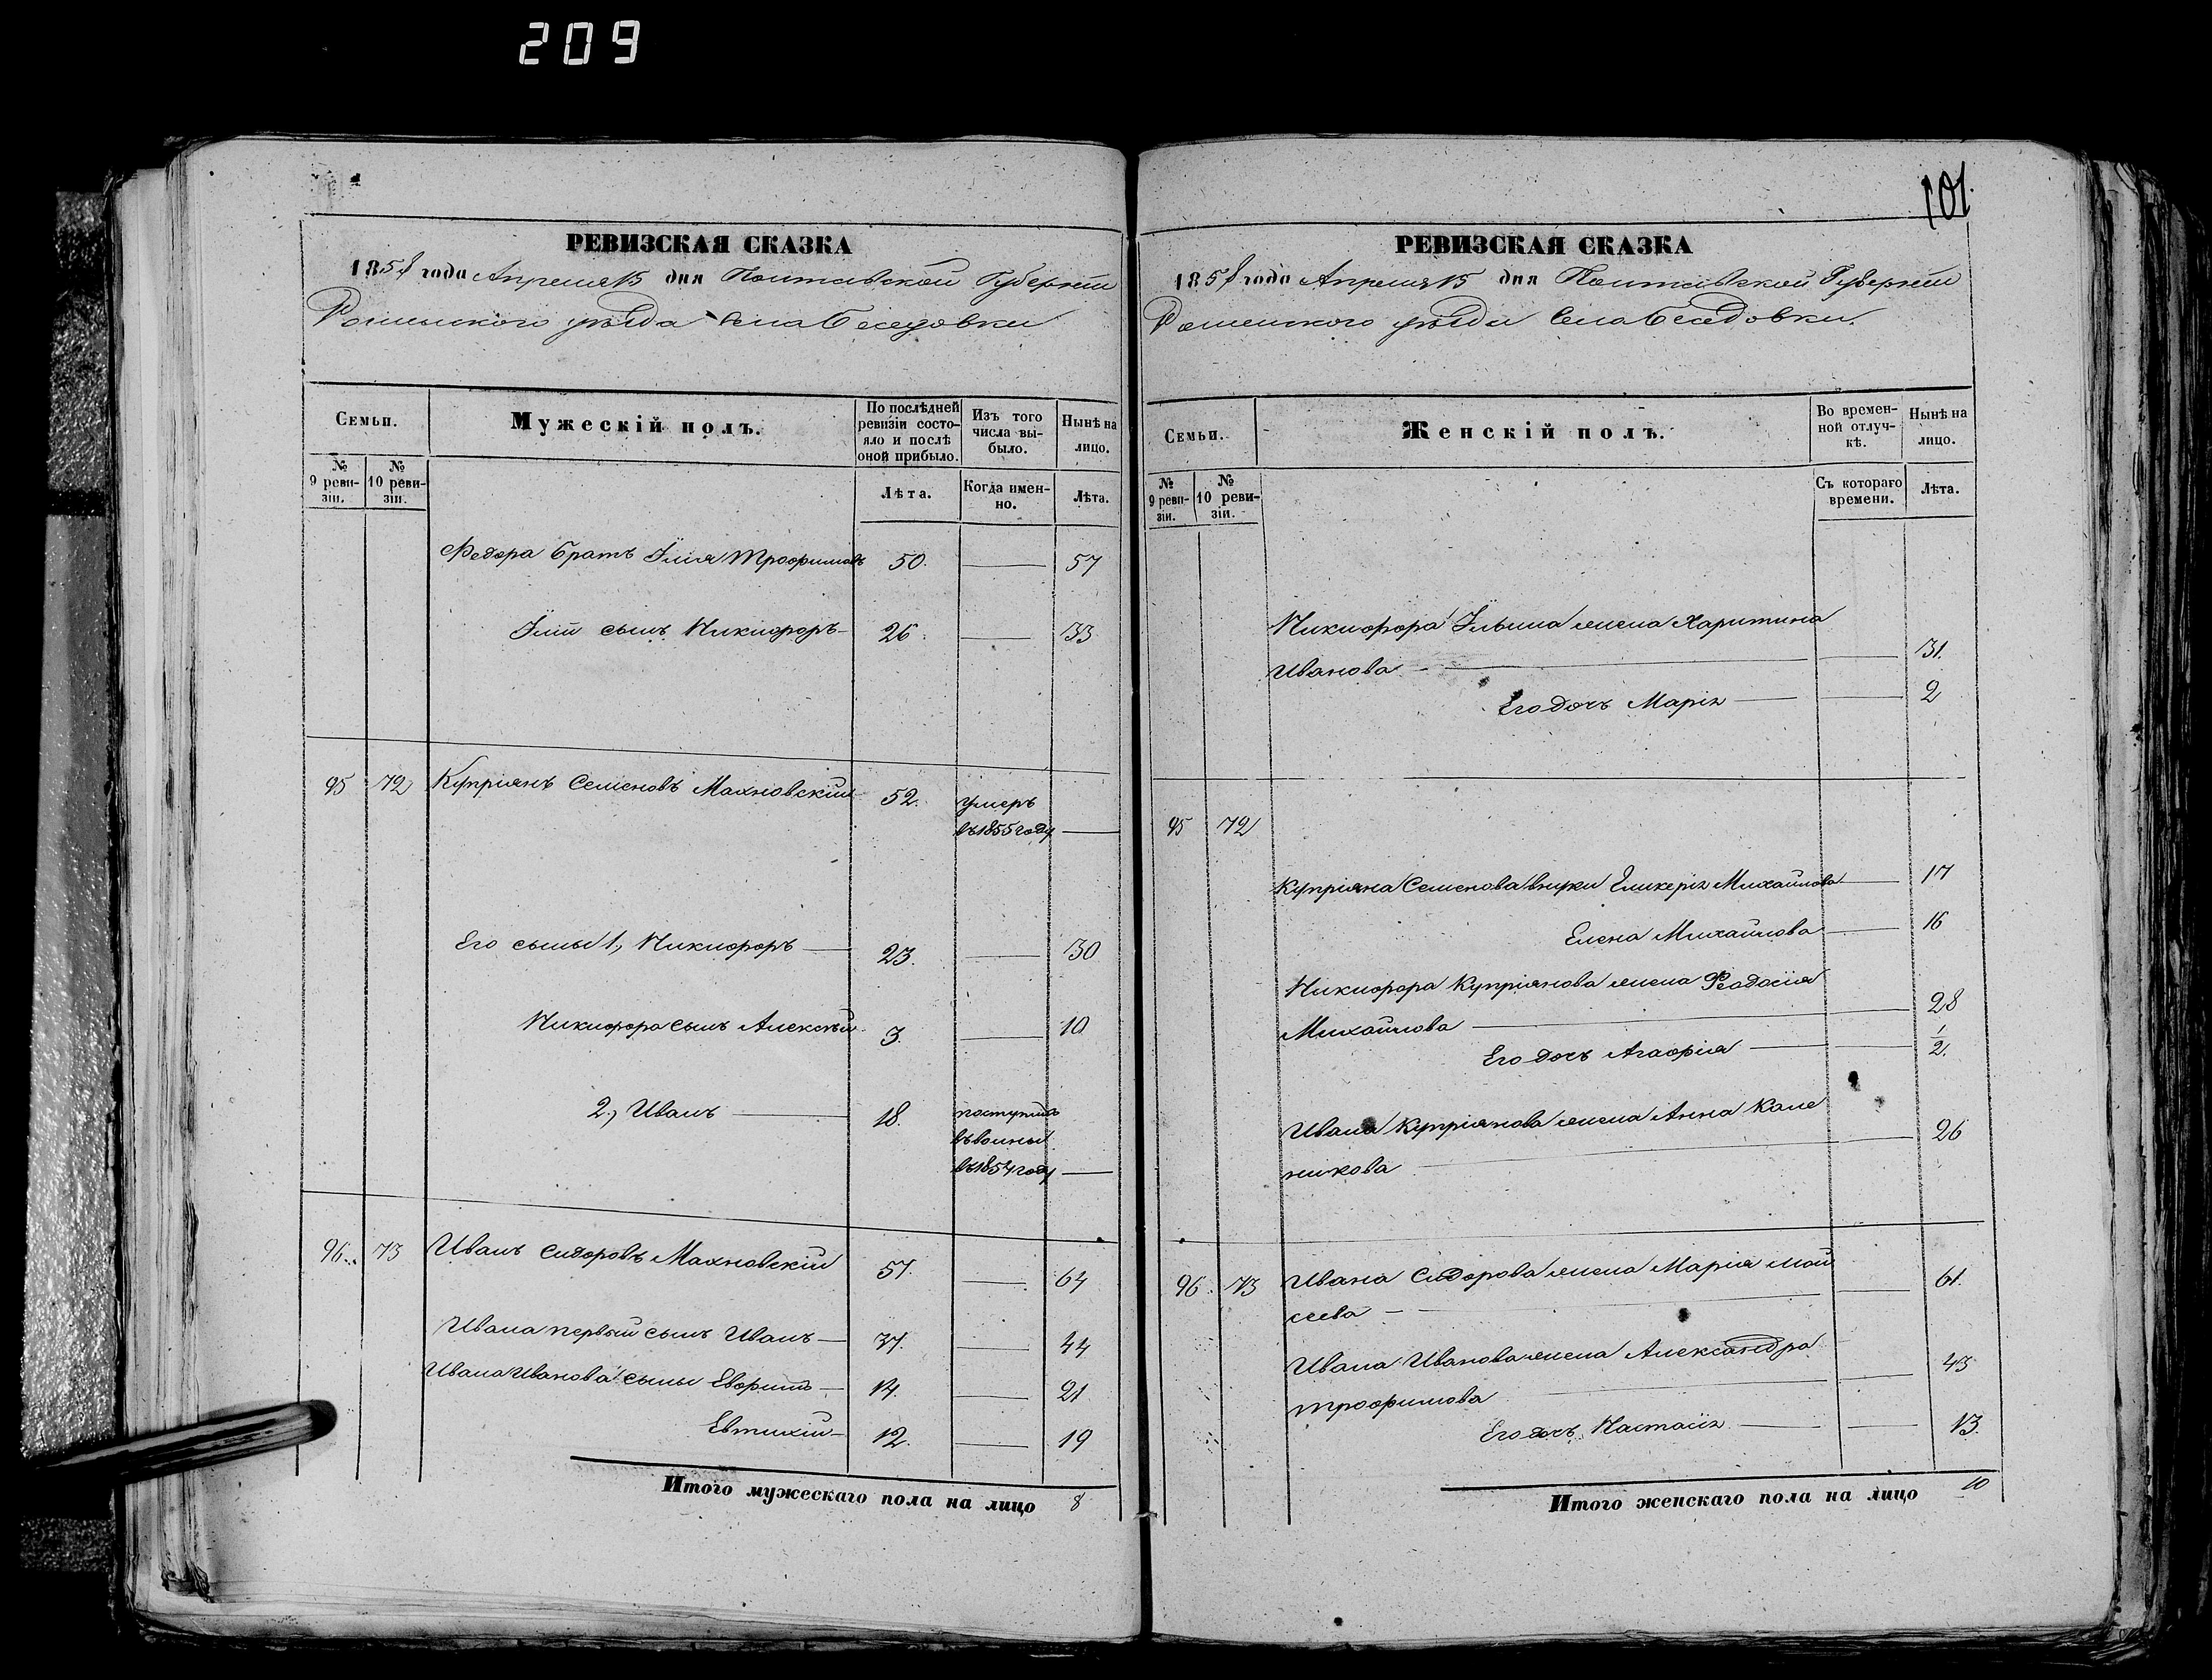 209
РЕВИЗСКАЯ СКАЗКА
1858 года Апреля 15 дня Полтавской Губерніи
Роменского уѣзда Села Беседовки
Семьи.
Мужескій полъ.
По послѣдней ревизіи состояло и послѣ оной прибыло.
Изъ того числа выбыло.
Нынѣ на лицо.
№ 9 ревизіи.
№ 10 ревизіи.
Лѣта.
Когда именно.
Лѣта.
Федора братъ Илія Трофимовъ 50. 57
Иліи сынъ Никифоръ 26. 33
95 72 Купріянъ Семеновъ Махновскій 52. умеръ
въ 1855 году
Его сыны 1, Никифоръ 23. 30
Никифора сынъ Алексѣй 3. 10
2, Иванъ 18. поступилъ
въ воины
въ 1854 году
96. 73 Иванъ Сидоровъ Махновскій 57. 64
Ивана первый сынъ Иванъ 37. 44
Ивана Иванова сыны Евфимъ 14. 21
Евтихій 12. 19
Итого мужескаго пола на лицо 8
101.
РЕВИЗСКАЯ СКАЗКА
1858 года Апреля 15 дня Полтавской Губерніи
Роменского уѣзда Села Беседовки.
Семьи.
Женскій полъ.
Во временной отлучкѣ.
Нынѣ на лицо.
№ 9 ревизіи.
№ 10 ревизіи.
Съ котораго времени.
Лѣта.
Никифора Ильина жена Харитина
Иванова 31.
Его дочь Марія 2
95 72
Купріяна Семенова внуки Гликерія Михайлова 17
Елена Михайлова 16
Никифора Купріянова жена Феодосія
Михайлова 28
Его дочь Агафія 1/2.
Ивана Купріянова жена Анна Кале
никова 26
96. 73 Ивана Сидорова жена Марія Мои
сеева 61.
Ивана Иванова жена Александра
Трофимова 43
Его дочь Настасія 13.
Итого женскаго пола на лицо 10